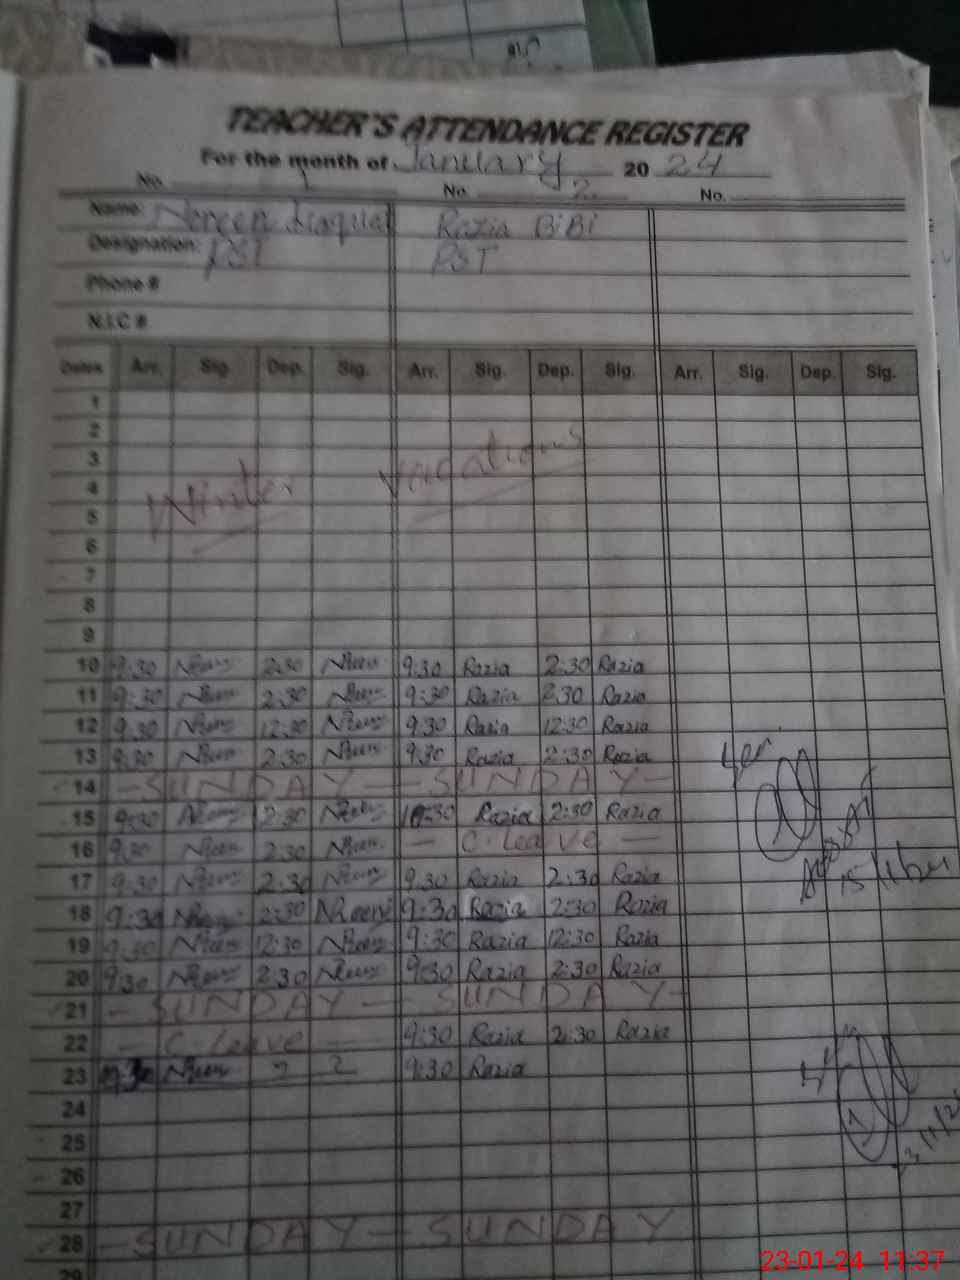 TEACHER'S ATTENDANCE REGISTER
For the month of January 2024
No. 1 No. 2 No.
Name: Noreen Liaquat Razia BiBi
Designation: PST PST
Phone #
N.I.C #
Dates Arr. Sig. Dep. Sig. Arr. Sig. Dep. Sig. Arr. Sig. Dep. Sig.
1
2
3
4
Winter Vacations
5
6
7
8
9
10 9:30 2:30 9:30 Razia 2:30 Razia
11 9:30 2:30 9:30 Razia 2:30 Razia
12 9:30 12:30 9:30 Razia 12:30 Razia
13 9:30 2:30 9:30 Razia 2:30 Razia
14 - SUNDAY - SUNDAY -
15 9:30 2:30 10:30 Razia 2:30 Razia
16 9:30 2:30 - C. Leave -
17 9:30 2:30 9:30 Razia 2:30 Razia
18 9:30 2:30 9:30 Razia 2:30 Razia
19 9:30 12:30 9:30 Razia 12:30 Razia
20 9:30 2:30 9:30 Razia 2:30 Razia
21 - SUNDAY - SUNDAY -
22 - C. Leave - 9:30 Razia 2:30 Razia
23 9:30 9:30 Razia
24
25
26
27
28 - SUNDAY - SUNDAY
29
23-01-24 11:37